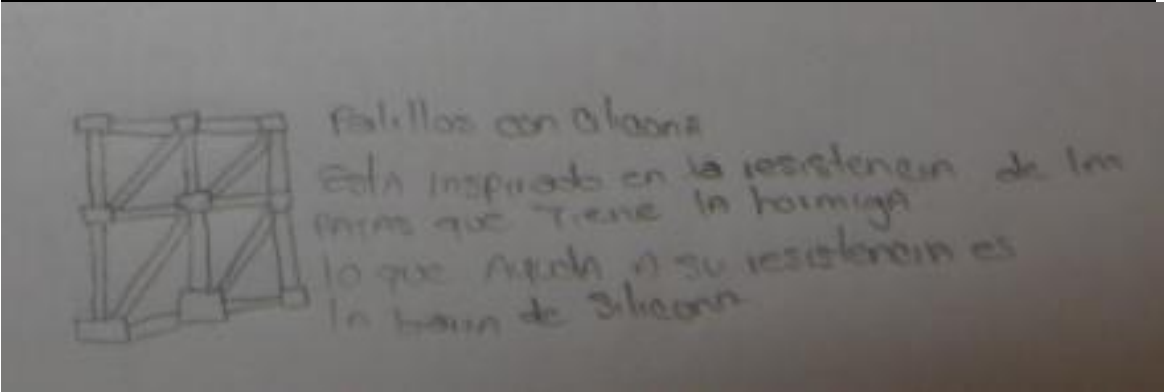 Palillos con silicona
Esta inspirado en la resistencia de las
patas que Tiene la hormiga
lo que Ayuda a su resistencia es
la barra de Silicona